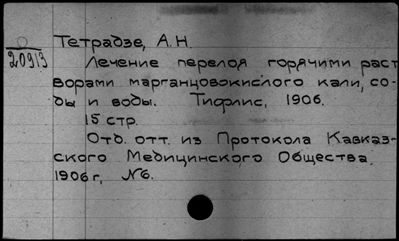 Тетрадзе, А.Н.
20919
Лечение перелоя горячими раст
ворами марганцовокислого кали, со-
ды и воды. Тифлис, 1906.
15 стр.
Отд. отт. из Протокола Кавказ-
ского Медицинского Общества.
1906 г, №6.